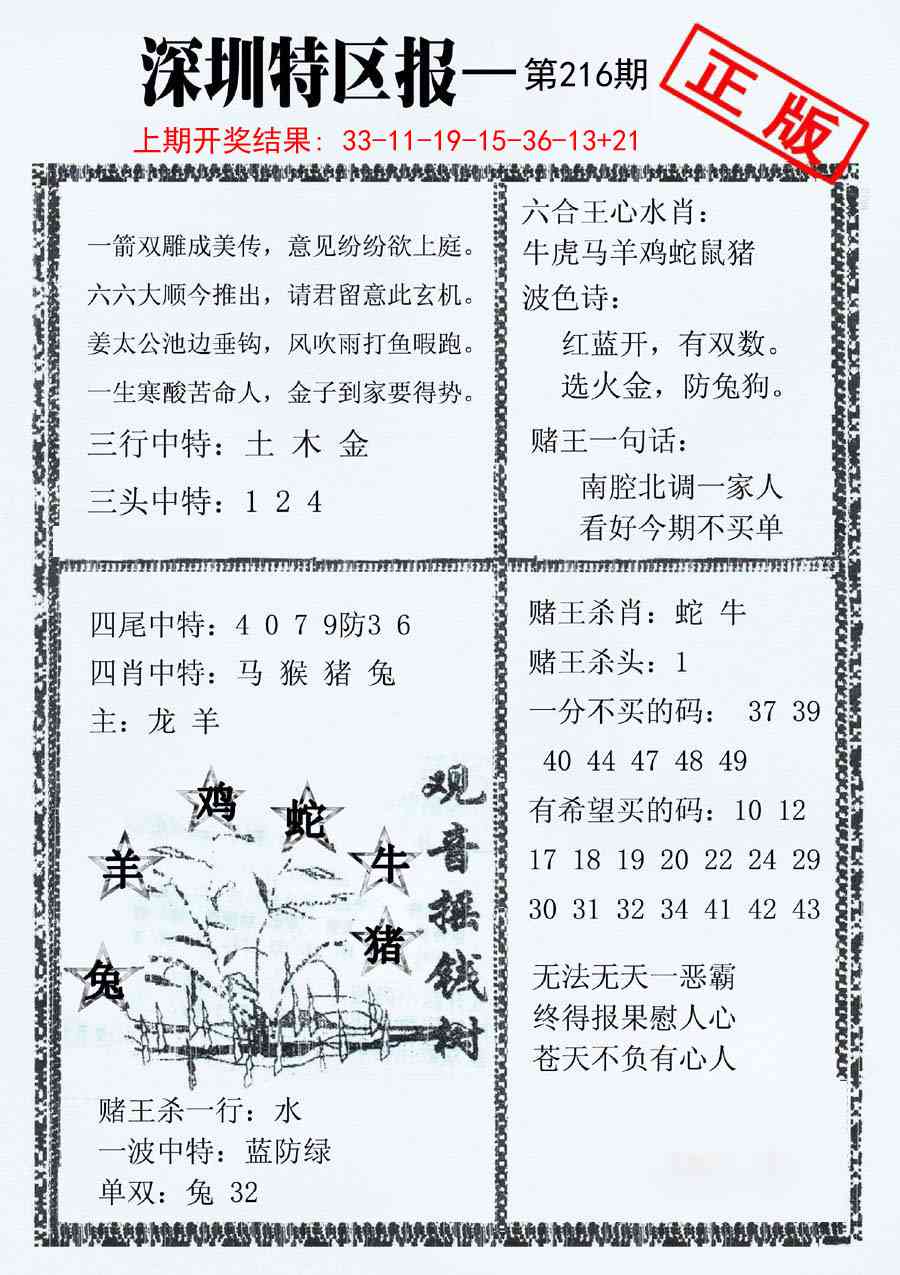 深圳特区报—第216期
正版
上期开奖结果：33-11-19-15-36-13+21
一箭双雕成美传，意见纷纷欲上庭。
六六大顺今推出，请君留意此玄机。
姜太公池边垂钩，风吹雨打鱼暇跑。
一生寒酸苦命人，金子到家要得势。
三行中特：土 木 金
三头中特：1 2 4
六合王心水肖：
牛虎马羊鸡蛇鼠猪
波色诗：
红蓝开，有双数。
选火金，防兔狗。
赌王一句话：
南腔北调一家人
看好今期不买单
四尾中特：4 0 7 9防3 6
四肖中特：马 猴 猪 兔
主：龙 羊
鸡
蛇
羊
牛
猪
兔
观音摇钱树
赌王杀一行：水
一波中特：蓝防绿
单双：兔 32
赌王杀肖：蛇 牛
赌王杀头：1
一分不买的码： 37 39
40 44 47 48 49
有希望买的码：10 12
17 18 19 20 22 24 29
30 31 32 34 41 42 43
无法无天一恶霸
终得报果慰人心
苍天不负有心人